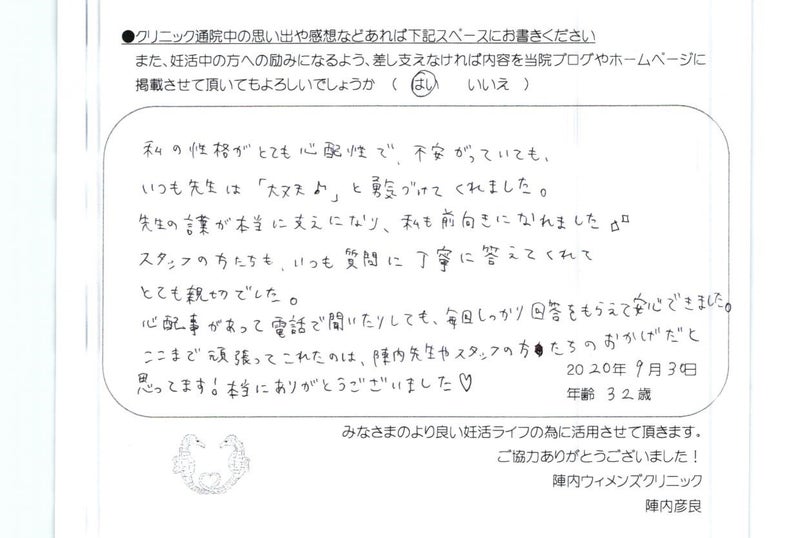 ●クリニック通院中の思い出や感想などあれば下記スペースにお書きください
また、妊活中の方への励みになるよう、差し支えなければ内容を当院ブログやホームページに
掲載させて頂いてもよろしいでしょうか （ はい いいえ ）
私の性格がとても心配性で、不安がっていても、
いつも先生は「大丈夫♪」と勇気づけてくれました。
先生の言葉が本当に支えになり、私も前向きになれました
スタッフの方たちも、いつも質問に丁寧に答えてくれて
とても親切でした。
心配事があって電話で聞いたりしても、毎回しっかり回答をもらえて安心できました。
ここまで頑張ってこれたのは、陣内先生やスタッフの方たちのおかげだと
思ってます！本当にありがとうございました♡
2020年9月30日
年齢 32歳
みなさまのより良い妊活ライフの為に活用させて頂きます。
ご協力ありがとうございました！
陣内ウィメンズクリニック
陣内彦良